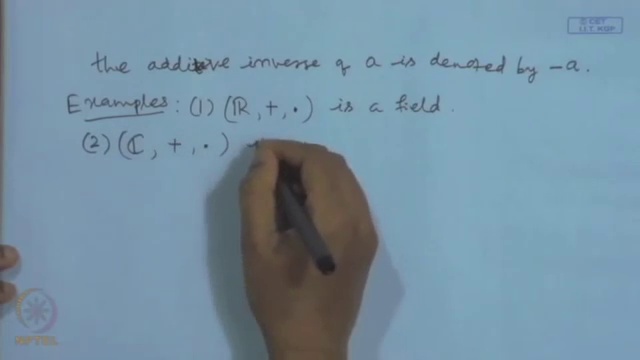 © CET
I.I.T. KGP
the additive inverse of a is denoted by -a.
Examples: (1) (ℝ, +, ·) is a field.
(2) (ℂ, +, ·)
NPTEL